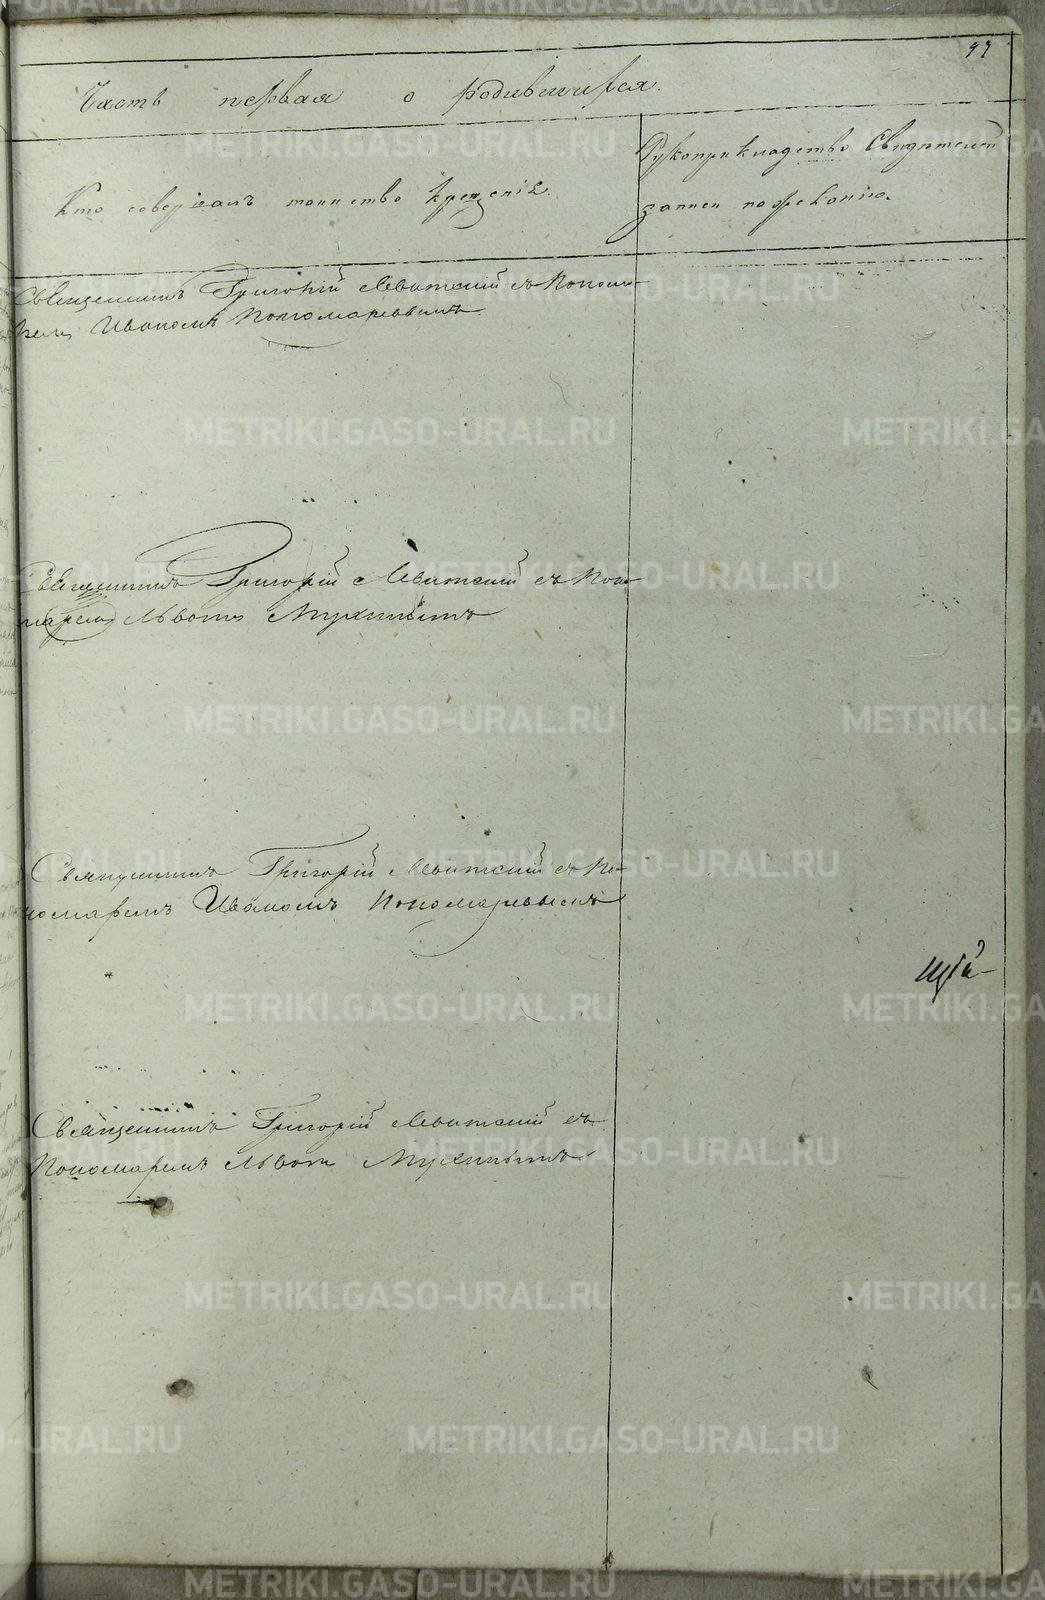 97
Часть первая о родившихся.
Кто совершалъ таинство крещенія.
Рукоприкладство Свидетелей
записи по желанію.
Священникъ Григорій Левитскій съ Поном
Иваномъ Пономаревымъ
Священникъ Григорій Левитскій съ Поно
маремъ Львомъ Мухинымъ
Священникъ Григорій Левитскій съ По-
номаремъ Иваномъ Пономаревымъ
щій
Священникъ Григорій Левитскій съ
Пономаремъ Львомъ Мухинымъ
METRIKI.GASO-URAL.RU